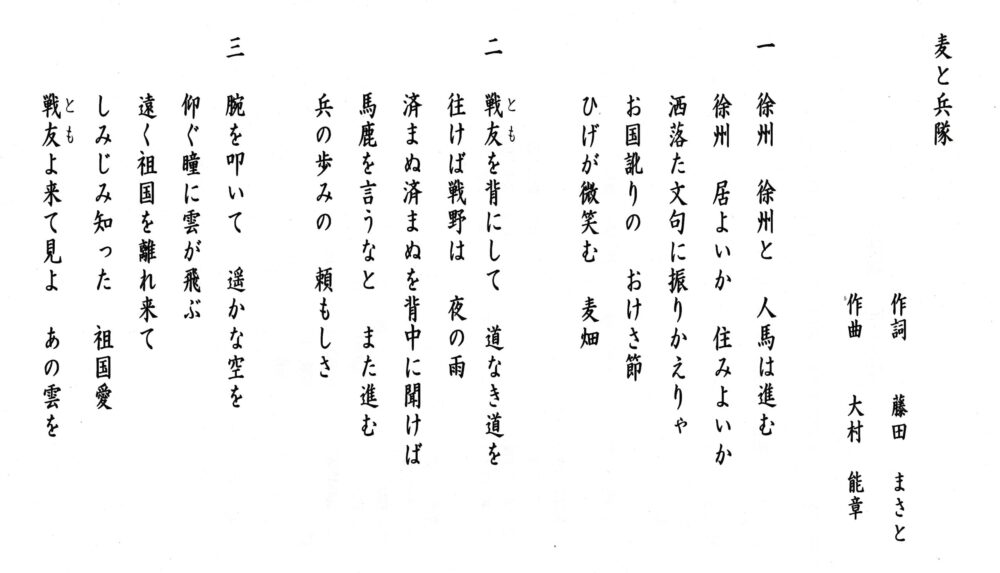 麦と兵隊
作詞　藤田　まさと
作曲　大村　能章
一　徐州　徐州と　人馬は進む
徐州　居よいか　住みよいか
洒落た文句に振りかえりゃ
お国訛りの　おけさ節
ひげが微笑む　麦畑
二　戦友を背にして　道なき道を
とも
往けば戦野は　夜の雨
済まぬ済まぬを背中に聞けば
馬鹿を言うなと　また進む
兵の歩みの　頼もしさ
三　腕を叩いて　遥かな空を
仰ぐ瞳に雲が飛ぶ
遠く祖国を離れ来て
しみじみ知った　祖国愛
戦友よ来て見よ　あの雲を
とも